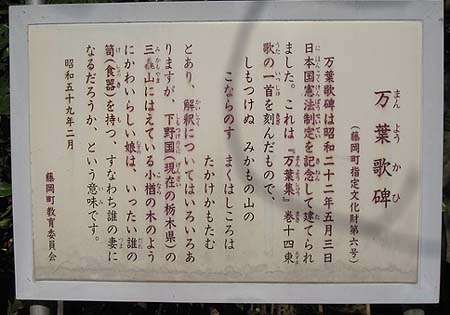 万葉歌碑
まんようかひ
(藤岡町指定文化財第六号)
万葉歌碑は昭和二十二年五月三日
日本国憲法制定を記念して建てられ
ました。これは『万葉集』巻十四東
歌の一首を刻んだもので、
しもつけぬ みかもの山の
こならのす まくはしころは
たかけかもたむ
とあり、解釈についてはいろいろあ
りますが、下野国(現在の栃木県)の
三毳山にはえている小楢の木のよう
にかわいらしい娘は、いったい誰の
笥(食器)を持つ、すなわち誰の妻に
なるだろうか、という意味です。
昭和五十九年二月
藤岡町教育委員会